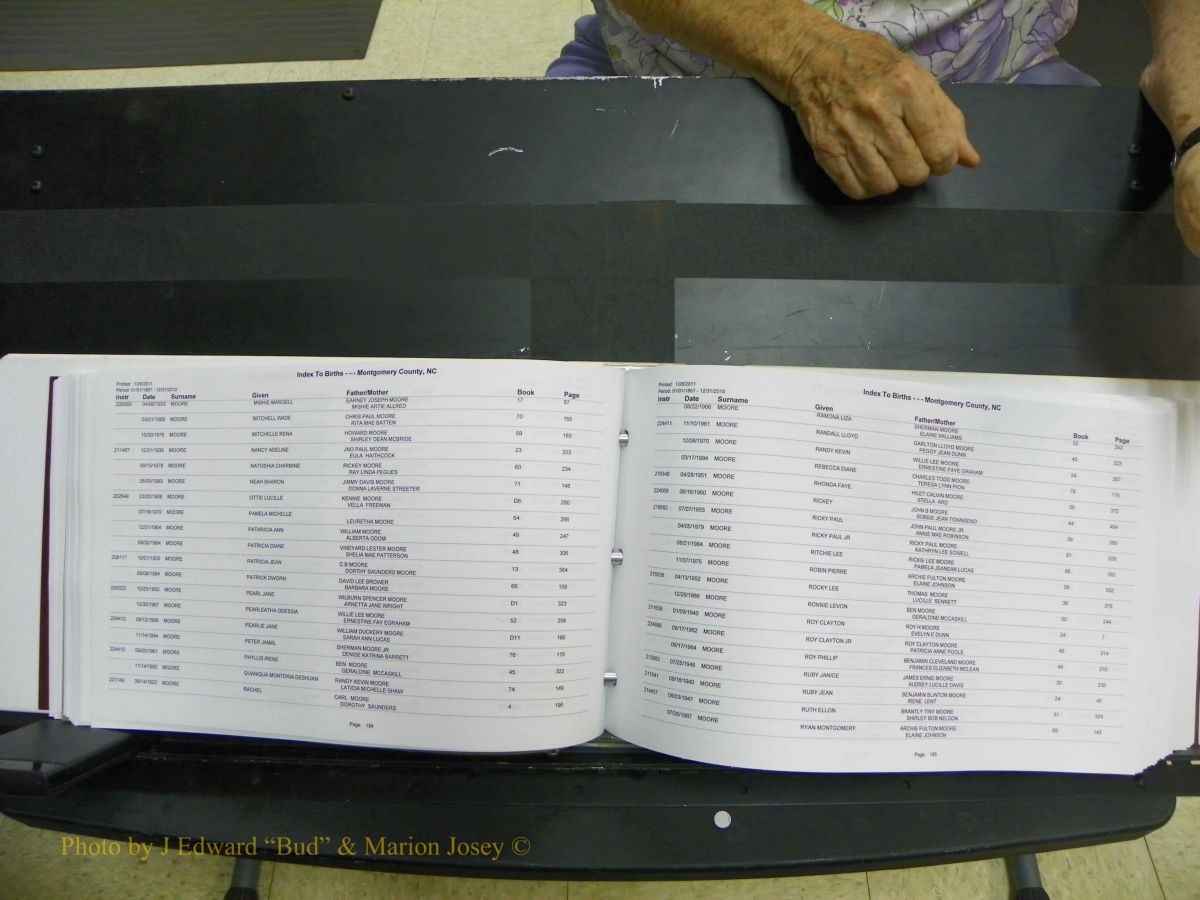 Index To Births - - - Montgomery County, NC
Printed: 1/28/2011
Period: 01/01/1867 - 12/31/2010
Instr Date Surname Given Father/Mother Book Page
MOORE MISHIE MARGELL EARNEY JOSEPH MOORE 17 87
MISHIE ARTIE ALLRED
03/01/1988 MOORE MITCHELL WADE CHRIS PAUL MOORE 70 155
RITA MAE BATTEN
10/30/1976 MOORE MITCHELLE RENA HOWARD MOORE 59 183
SHIRLEY DEAN MCBRIDE
211457 12/31/1939 MOORE NANCY ADELINE JNO PAUL MOORE 23 203
EULA HAITHCOCK
09/13/1978 MOORE NATOSHIA CHARMINE RICKEY MOORE 60 234
RAY LINDA PEGUES
05/09/1989 MOORE NEAH SHARON JIMMY DAVIS MOORE 71 148
DONNA LAVERNE STREETER
202649 03/20/1908 MOORE OTTIE LUCILLE KENNIE MOORE D6 260
VELLA FREEMAN
07/18/1970 MOORE PAMELA MICHELLE 54 266
LEURETHA MOORE
12/01/1964 MOORE PATARICIA ANN WILLIAM MOORE 49 247
ALBERTA ODOM
MOORE PATRICIA DIANE VINEYARD LESTER MOORE 48 306
SHELIA MAE PATTERSON
208117 10/01/1929 MOORE PATRICIA JEAN C B MOORE 13 364
DORTHY SAUNDERS MOORE
09/26/1984 MOORE PATRICK DWORN DAVID LEE BROWER 66 159
BARBARA MOORE
200323 10/25/1903 MOORE PEARL JANE WILBURN SPENCER MOORE D1 323
ARNETTA JANE WRIGHT
12/30/1967 MOORE PEARLEATHA ODESSIA WILLIE LEE MOORE 52 258
ERNESTINE FAY EGRAHAM
204410 09/12/1906 MOORE PEARLIE JANE WILLIAM DUCKERY MOORE D11 166
SARAH ANN LUCAS
11/14/1994 MOORE PETER JAMAL SHERMAN MOORE JR 76 115
DENISE KATRINA BARRETT
224415 09/05/1961 MOORE PHYLLIS IRENE BEN MOORE 45 322
GERALDINE MCCASKILL
11/14/1992 MOORE QUANIQUA MONTORIA DESHUAN RANDY KEVIN MOORE 74 149
LATICIA MICHELLE SHAW
221749 08/14/1920 MOORE RACHEL CARL MOORE 4 196
DOROTHY SAUNDERS
Page: 184
Index To Births - - - Montgomery County, NC
Printed: 1/28/2011
Period: 01/01/1867 - 12/31/2010
Instr Date Surname Given Father/Mother Book Page
08/22/1966 MOORE RAMONA LIZA SHERMAN MOORE 50 243
ELAINE WILLIAMS
224411 11/10/1961 MOORE RANDALL LLOYD GARLTON LLOYD MOORE 45 323
PEGGY JEAN DUNN
12/08/1970 MOORE RANDY KEVIN WILLIE LEE MOORE 54 267
ERNESTINE FAYE GRAHAM
03/17/1994 MOORE REBECCA DIANE CHARLES TODD MOORE 76 116
TERESA LYNN PION
216348 04/28/1951 MOORE RHONDA FAYE HILET CALVIN MOORE 35 372
STELLA ARD
224068 06/16/1960 MOORE RICKEY JOHN B MOORE 44 464
BOBBIE JEAN TOWNSEND
218682 07/07/1955 MOORE RICKY PAUL JOHN PAUL MOORE JR 39 389
ANNIE MAE ROBINSON
04/05/1979 MOORE RICKY PAUL JR RICKY PAUL MOORE 61 208
KATHRYN LEE SOWELL
08/21/1984 MOORE RITCHIE LEE RICKIE LEE MOORE 66 160
PAMELA JEANEAN LUCAS
11/07/1975 MOORE ROBIN PIERRE ARCHIE FULTON MOORE 58
ELAINE JOHNSON
04/13/1952 MOORE ROCKY LEE THOMAS MOORE 36 379
LUCILLE BENNETT
12/26/1966 MOORE RONNIE LEVON BEN MOORE 50 244
GERALDINE MCCASKILL
211608 01/09/1940 MOORE ROY CLAYTON ROY H MOORE 24 7
EVELYN E DUNN
224686 08/17/1962 MOORE ROY CLAYTON JR ROY CLAYTON MOORE 46 214
PATRICIA ANNE POOLE
06/17/1964 MOORE ROY PHILLIP BENJAMIN CLEVELAND MOORE 48 210
FRANCES ELIZABETH MCLEAN
213982 07/25/1946 MOORE RUBY JANICE JAMES ERNIE MOORE 30 235
AUDREY LUCILLE DAVIS
211641 09/18/1940 MOORE RUBY JEAN BENJAMIN BLINTON MOORE 24 40
IRENE LENT
214457 08/03/1947 MOORE RUTH ELLON BRANTLY TINY MOORE 31 324
SHIRLEY BOB NELSON
07/26/1987 MOORE RYAN MONTGOMERY ARCHIE FULTON MOORE 69 143
ELAINE JOHNSON
Page: 185
Photo by J Edward “Bud” & Marion Josey ©